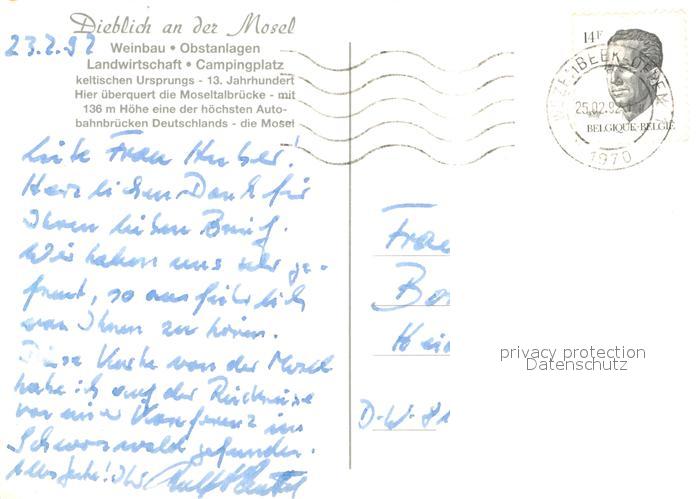 Dieblich an der Mosel
23.2.92
Weinbau • Obstanlagen
Landwirtschaft • Campingplatz
keltischen Ursprungs - 13. Jahrhundert
Hier überquert die Moseltalbrücke - mit
136 m Höhe eine der höchsten Auto-
bahnbrücken Deutschlands - die Mosel
Liebe Frau Huber!
Herzlichen Dank für
Ihren lieben Brief.
Wir haben uns sehr ge-
freut, so ausführlich
von Ihnen zu hören.
Diese Karte von der Mosel
habe ich auf der Rückreise
von einer Konferenz im
Schwarzwald gefunden.
Alles Gute! Ihr
14F
BELGIQUE-BELGIË
25.02.92
1970
Frau
D-W-81
privacy protection
Datenschutz